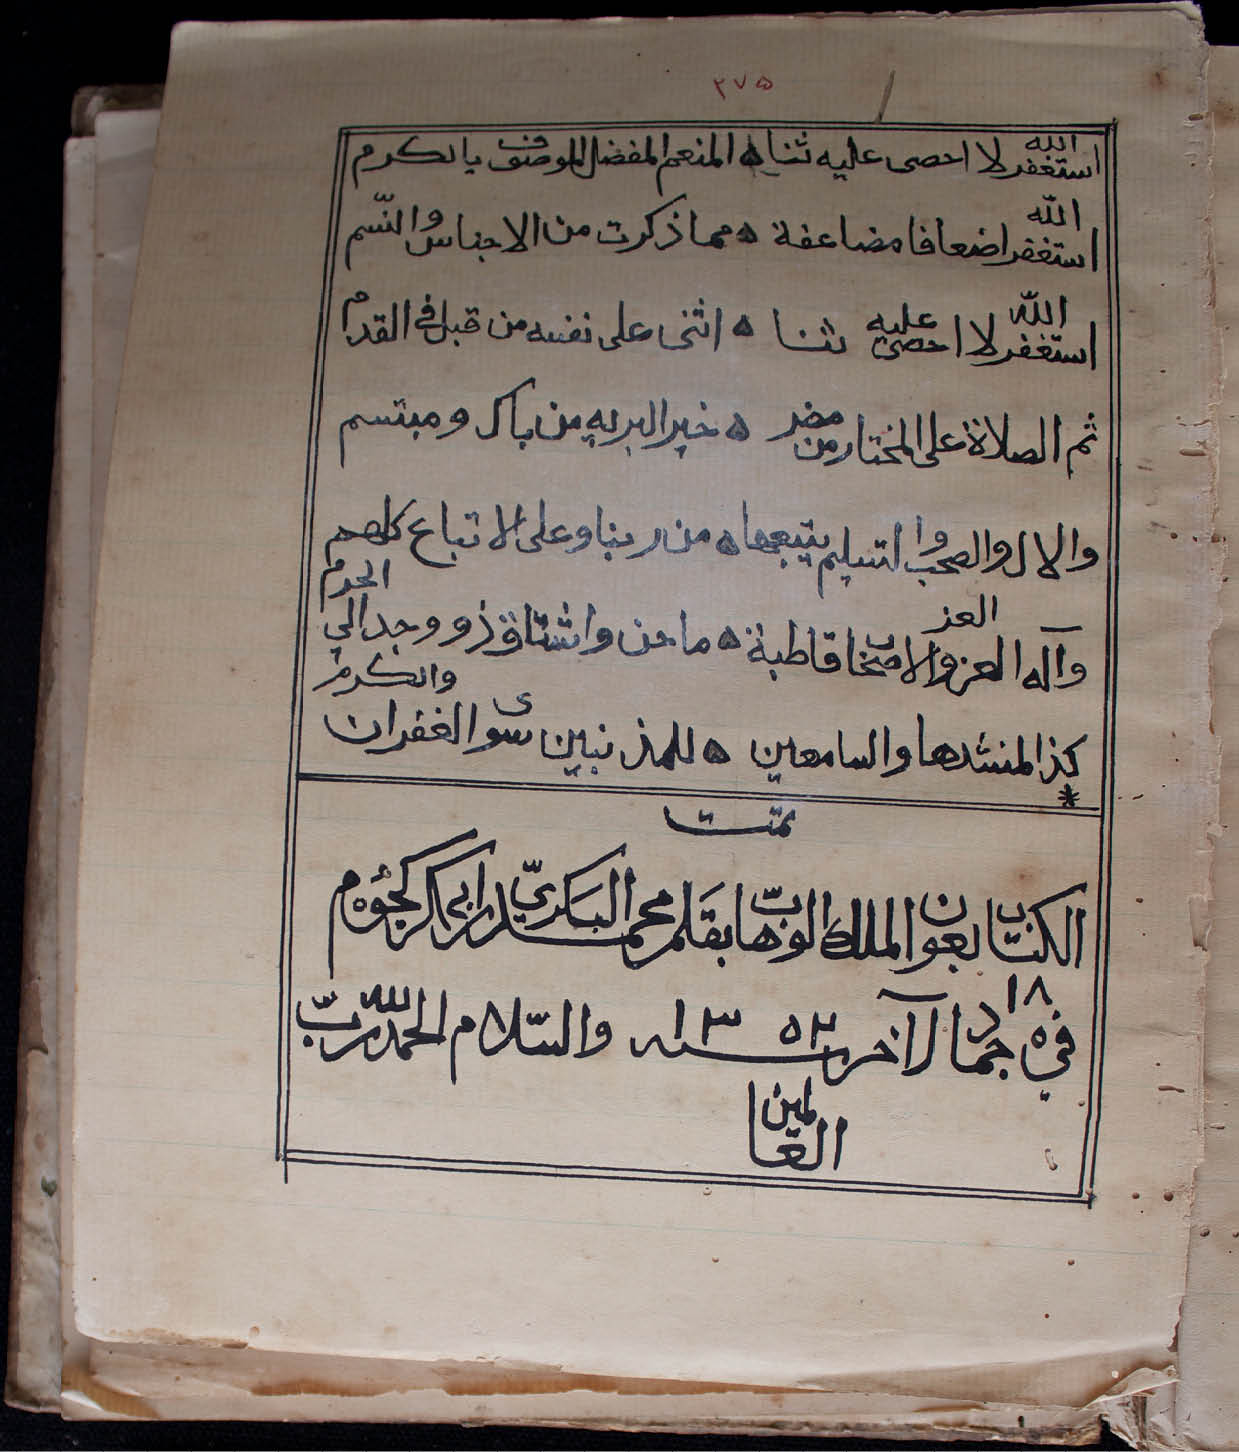 ٢٧٥
استغفر الله لا احصى عليه ثناه ه المنعم المفضل الموصوف بالكرم
استغفر الله اضعافا مضاعفة ه مما ذكرت من الاجناس والنّسم
استغفر اللّه لا احصى عليه ثنا ه اثنى على نفسه من قبل في القدم
ثم الصلاة على المختار من مضر ه خير البريه من باك ومبتسم
والال والصحب والتسليم يتبعها ه من ربنا وعلى الاتباع كلهم
وآله العز العز والا قاطبة ه ما حن واشتاق ذو وجد الي الحرم
كذا لمنشدها والسامعين ه للمذنبين سوى الغفران والكرم
*
تمّت
الكتاب بعون الملك الوهاب بقلم محمد البَكريّ ابى بكر كجُوه م
في ١٨ ه جماد لآخر سنه ١٣٥٢ والسّلام الحمد للّه ربّ
العالمين